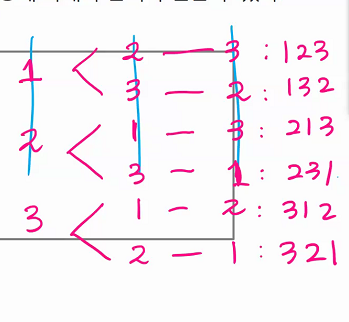 1 < 2 — 3 : 123
3 — 2 : 132
2 < 1 — 3 : 213
3 — 1 : 231
3 < 1 — 2 : 312
2 — 1 : 321